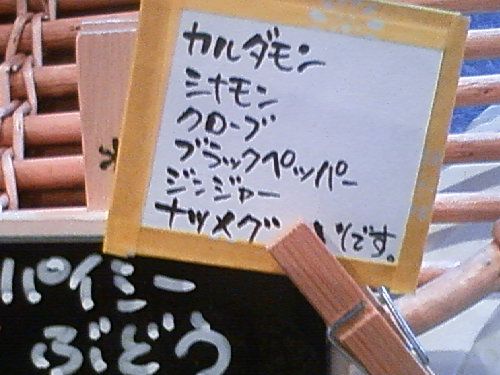 カルダモン
シナモン
クローブ
ブラックペッパー
ジンジャー
ナツメグ です。
パイミー
ぶどう